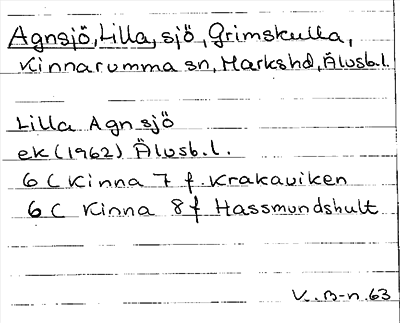 Agnsjö, Lilla, sjö, Grimskulla,
Kinnarumma sn, Markshd, Älvsb.l.
Lilla Agnsjö
ek (1962) Älvsb.l.
6 C Kinna 7 f. Krakaviken
6 C Kinna 8 f Hassmundshult
V. B-n. 63